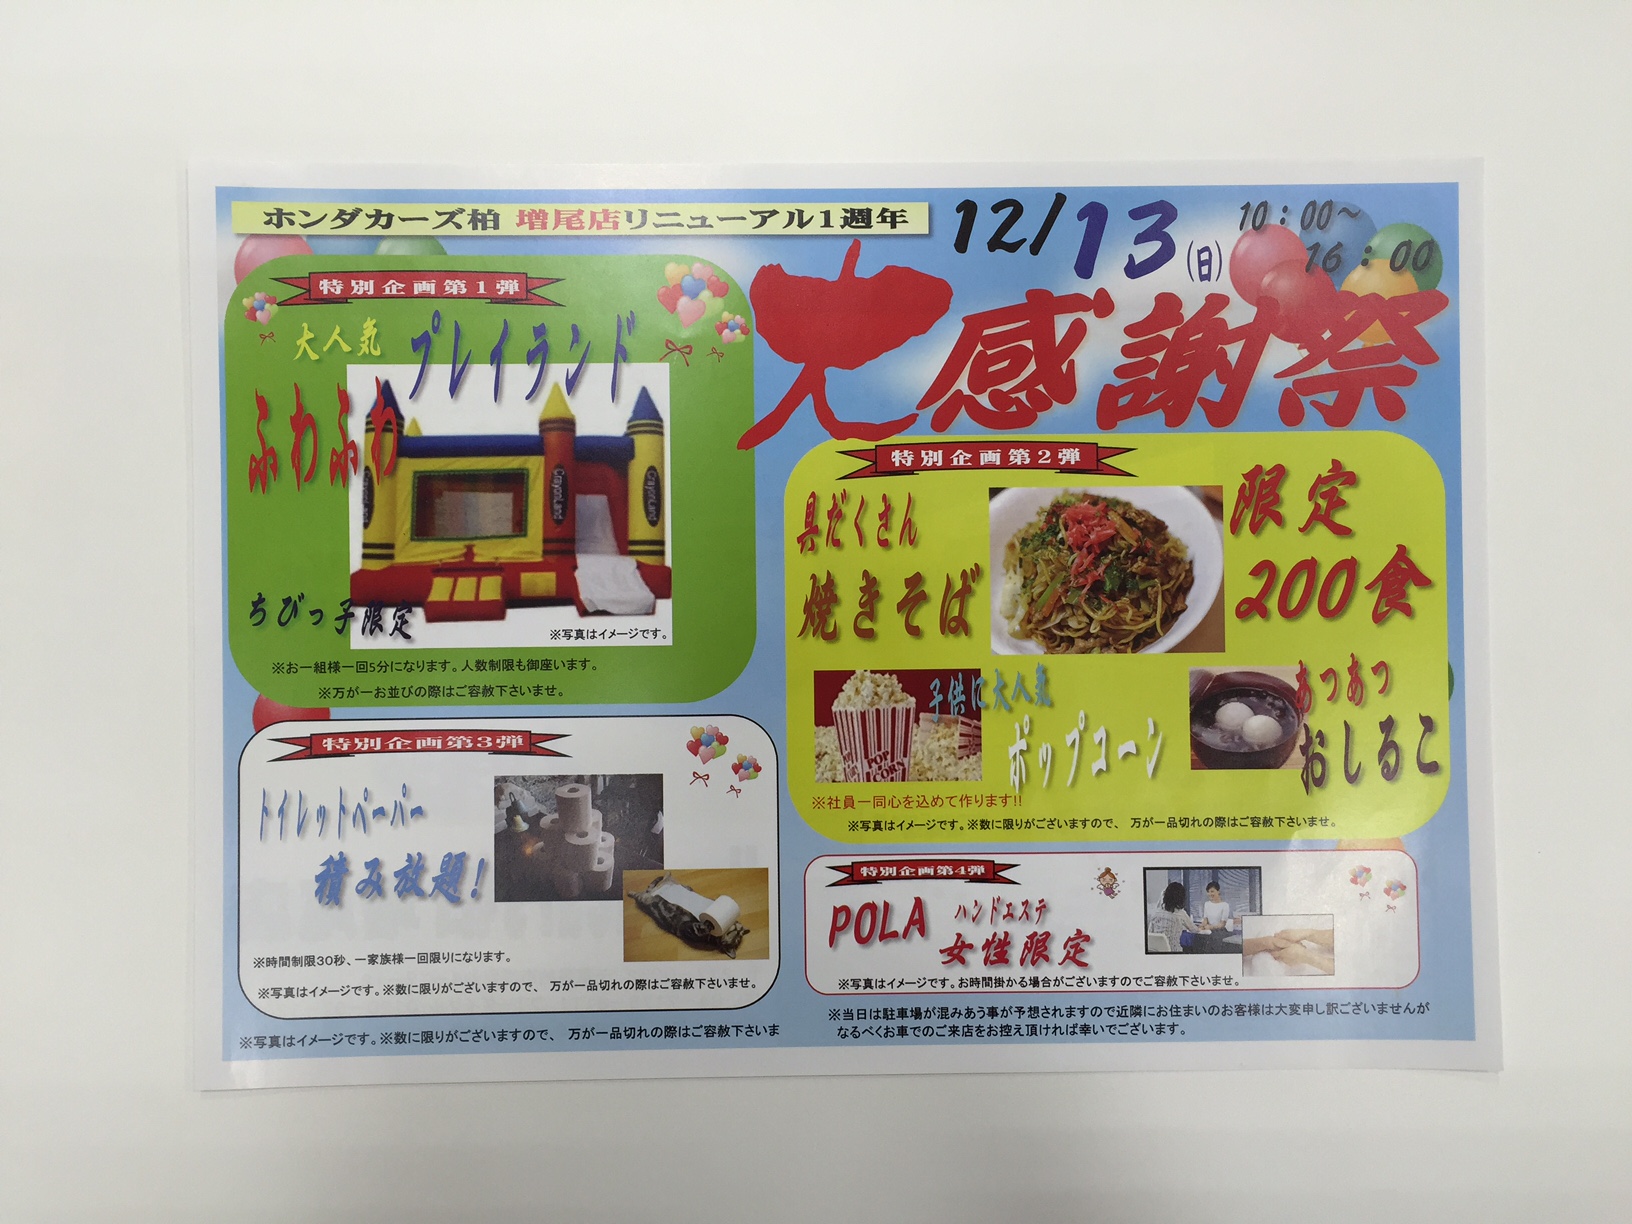 ホンダカーズ柏 増尾店リニューアル1週年
12/13(日)
10:00~
16:00
大感謝祭
特別企画第1弾
大人気 プレイランド
ふわふわ
CrayonLand
CrayonLand
ちびっ子限定
※写真はイメージです。
※お一組様一回5分になります。人数制限も御座います。
※万が一お並びの際はご容赦下さいませ。
特別企画第2弾
具だくさん
焼きそば
限定
200食
子供に大人気
ポップコーン
POP
CORN
あつあつ
おしるこ
※社員一同心を込めて作ります!!
※写真はイメージです。※数に限りがございますので、 万が一品切れの際はご容赦下さいませ。
特別企画第3弾
トイレットペーパー
積み放題!
※時間制限30秒、一家族様一回限りになります。
※写真はイメージです。※数に限りがございますので、 万が一品切れの際はご容赦下さいませ。
特別企画第4弾
POLA ハンドエステ
女性限定
※写真はイメージです。お時間掛かる場合がございますのでご容赦下さいませ。
※写真はイメージです。※数に限りがございますので、 万が一品切れの際はご容赦下さいま
※当日は駐車場が混みあう事が予想されますので近隣にお住まいのお客様は大変申し訳ございませんが
なるべくお車でのご来店をお控え頂ければ幸いでございます。